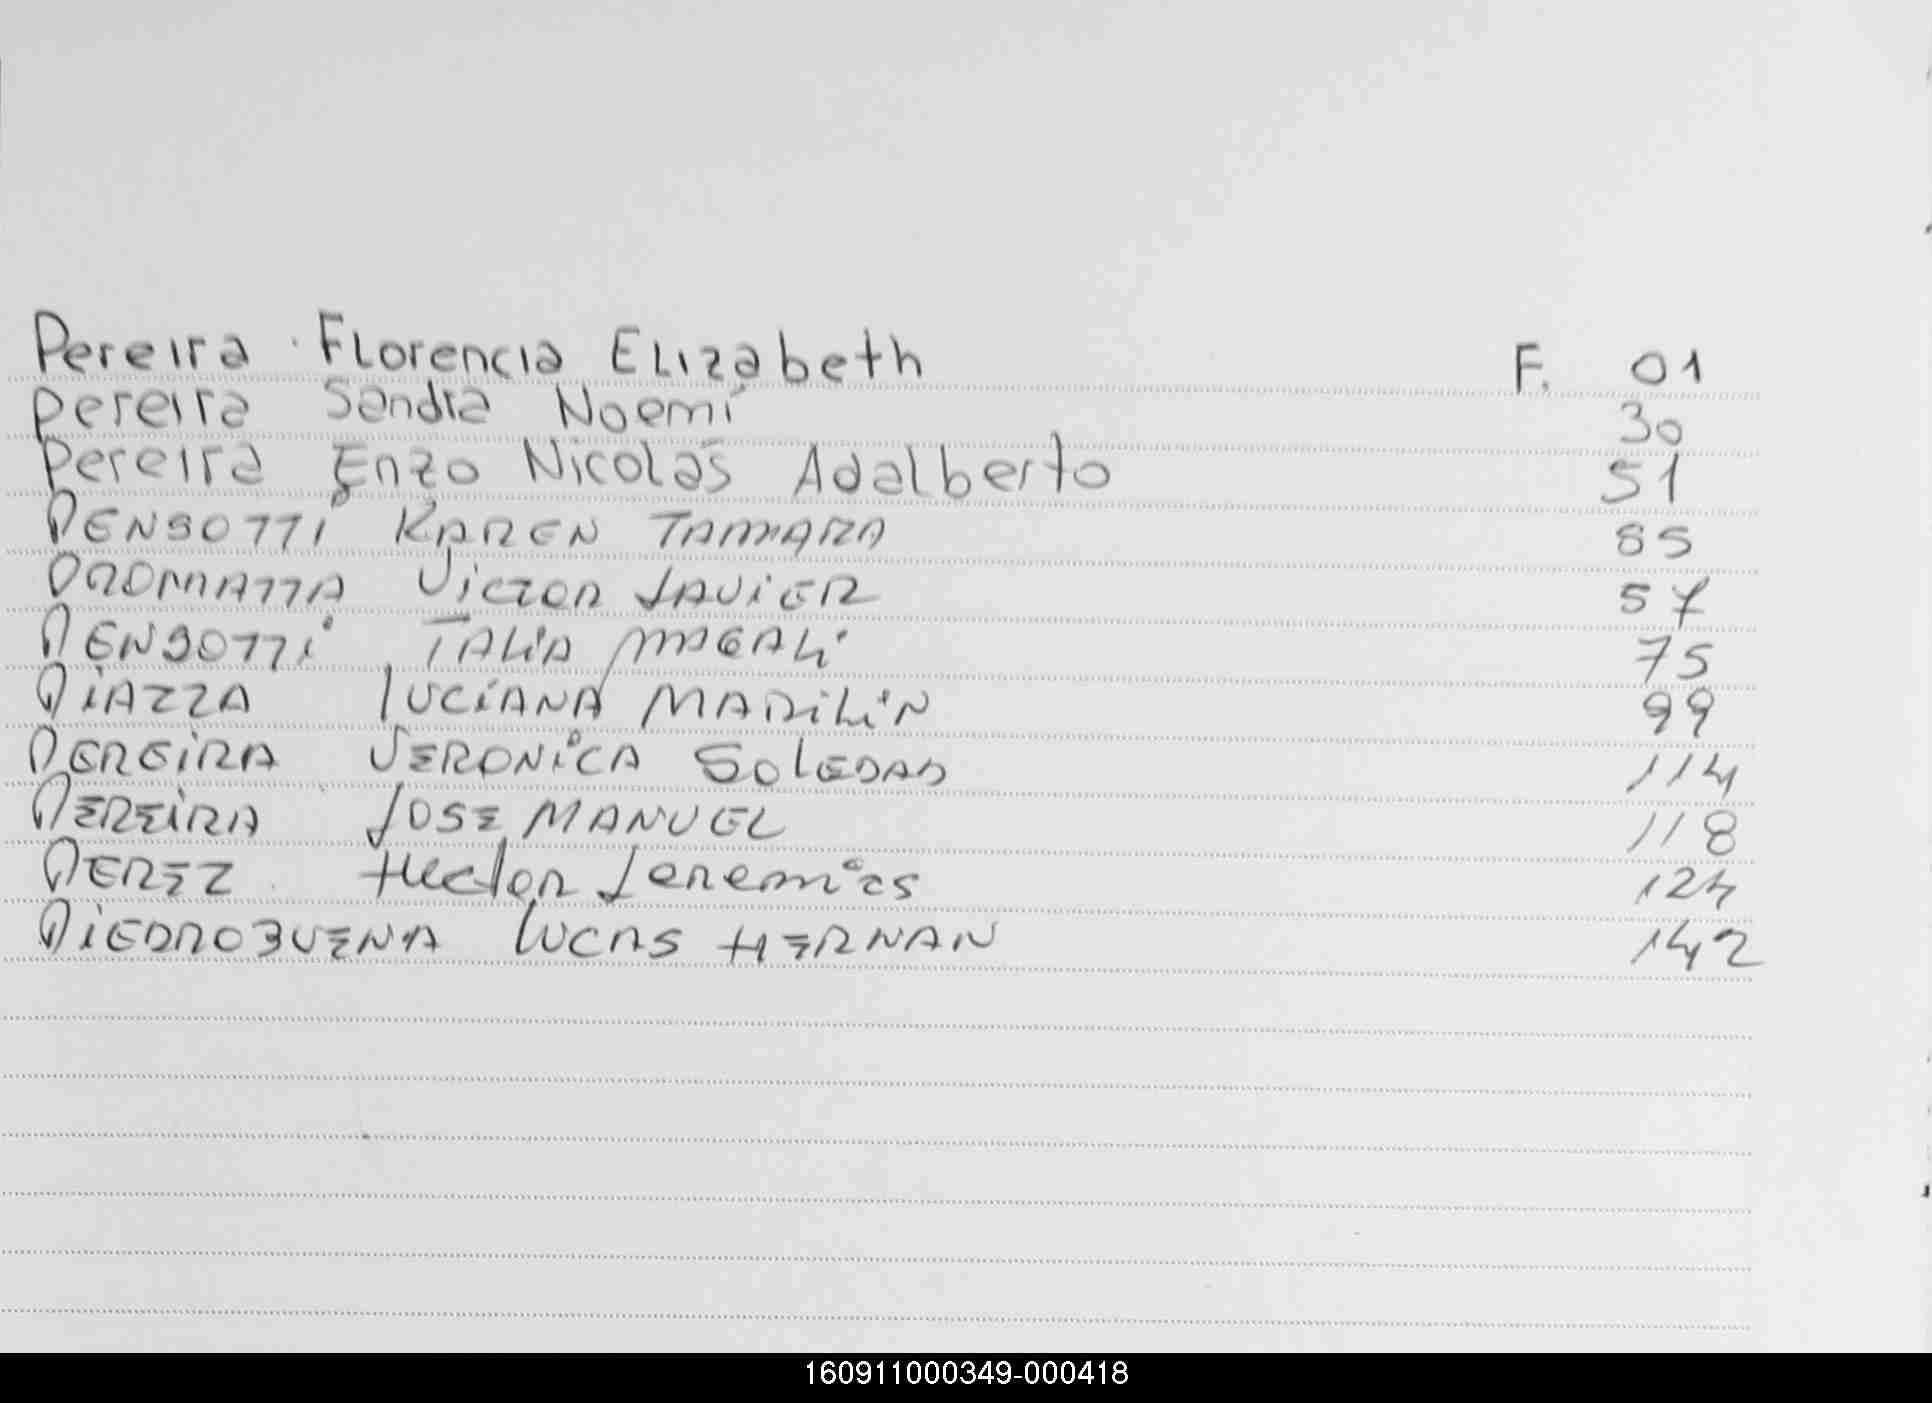 Pereira Florencia Elizabeth F. 01
Pereira Sandra Noemí 30
Pereira Enzo Nicolás Adalberto 51
PENSOTTI KAREN TAMARA 55
PROMATTA Victor JAVIER 57
PENSOTTI TALIA MAGALI 75
PIAZZA LUCIANA MARILIN 99
PEREIRA VERONICA SOLEDAD 114
PEREIRA JOSE MANUEL 118
PEREZ Hector Jeremias 124
PIEDROBUENA LUCAS HERNAN 142
160911000349-000418